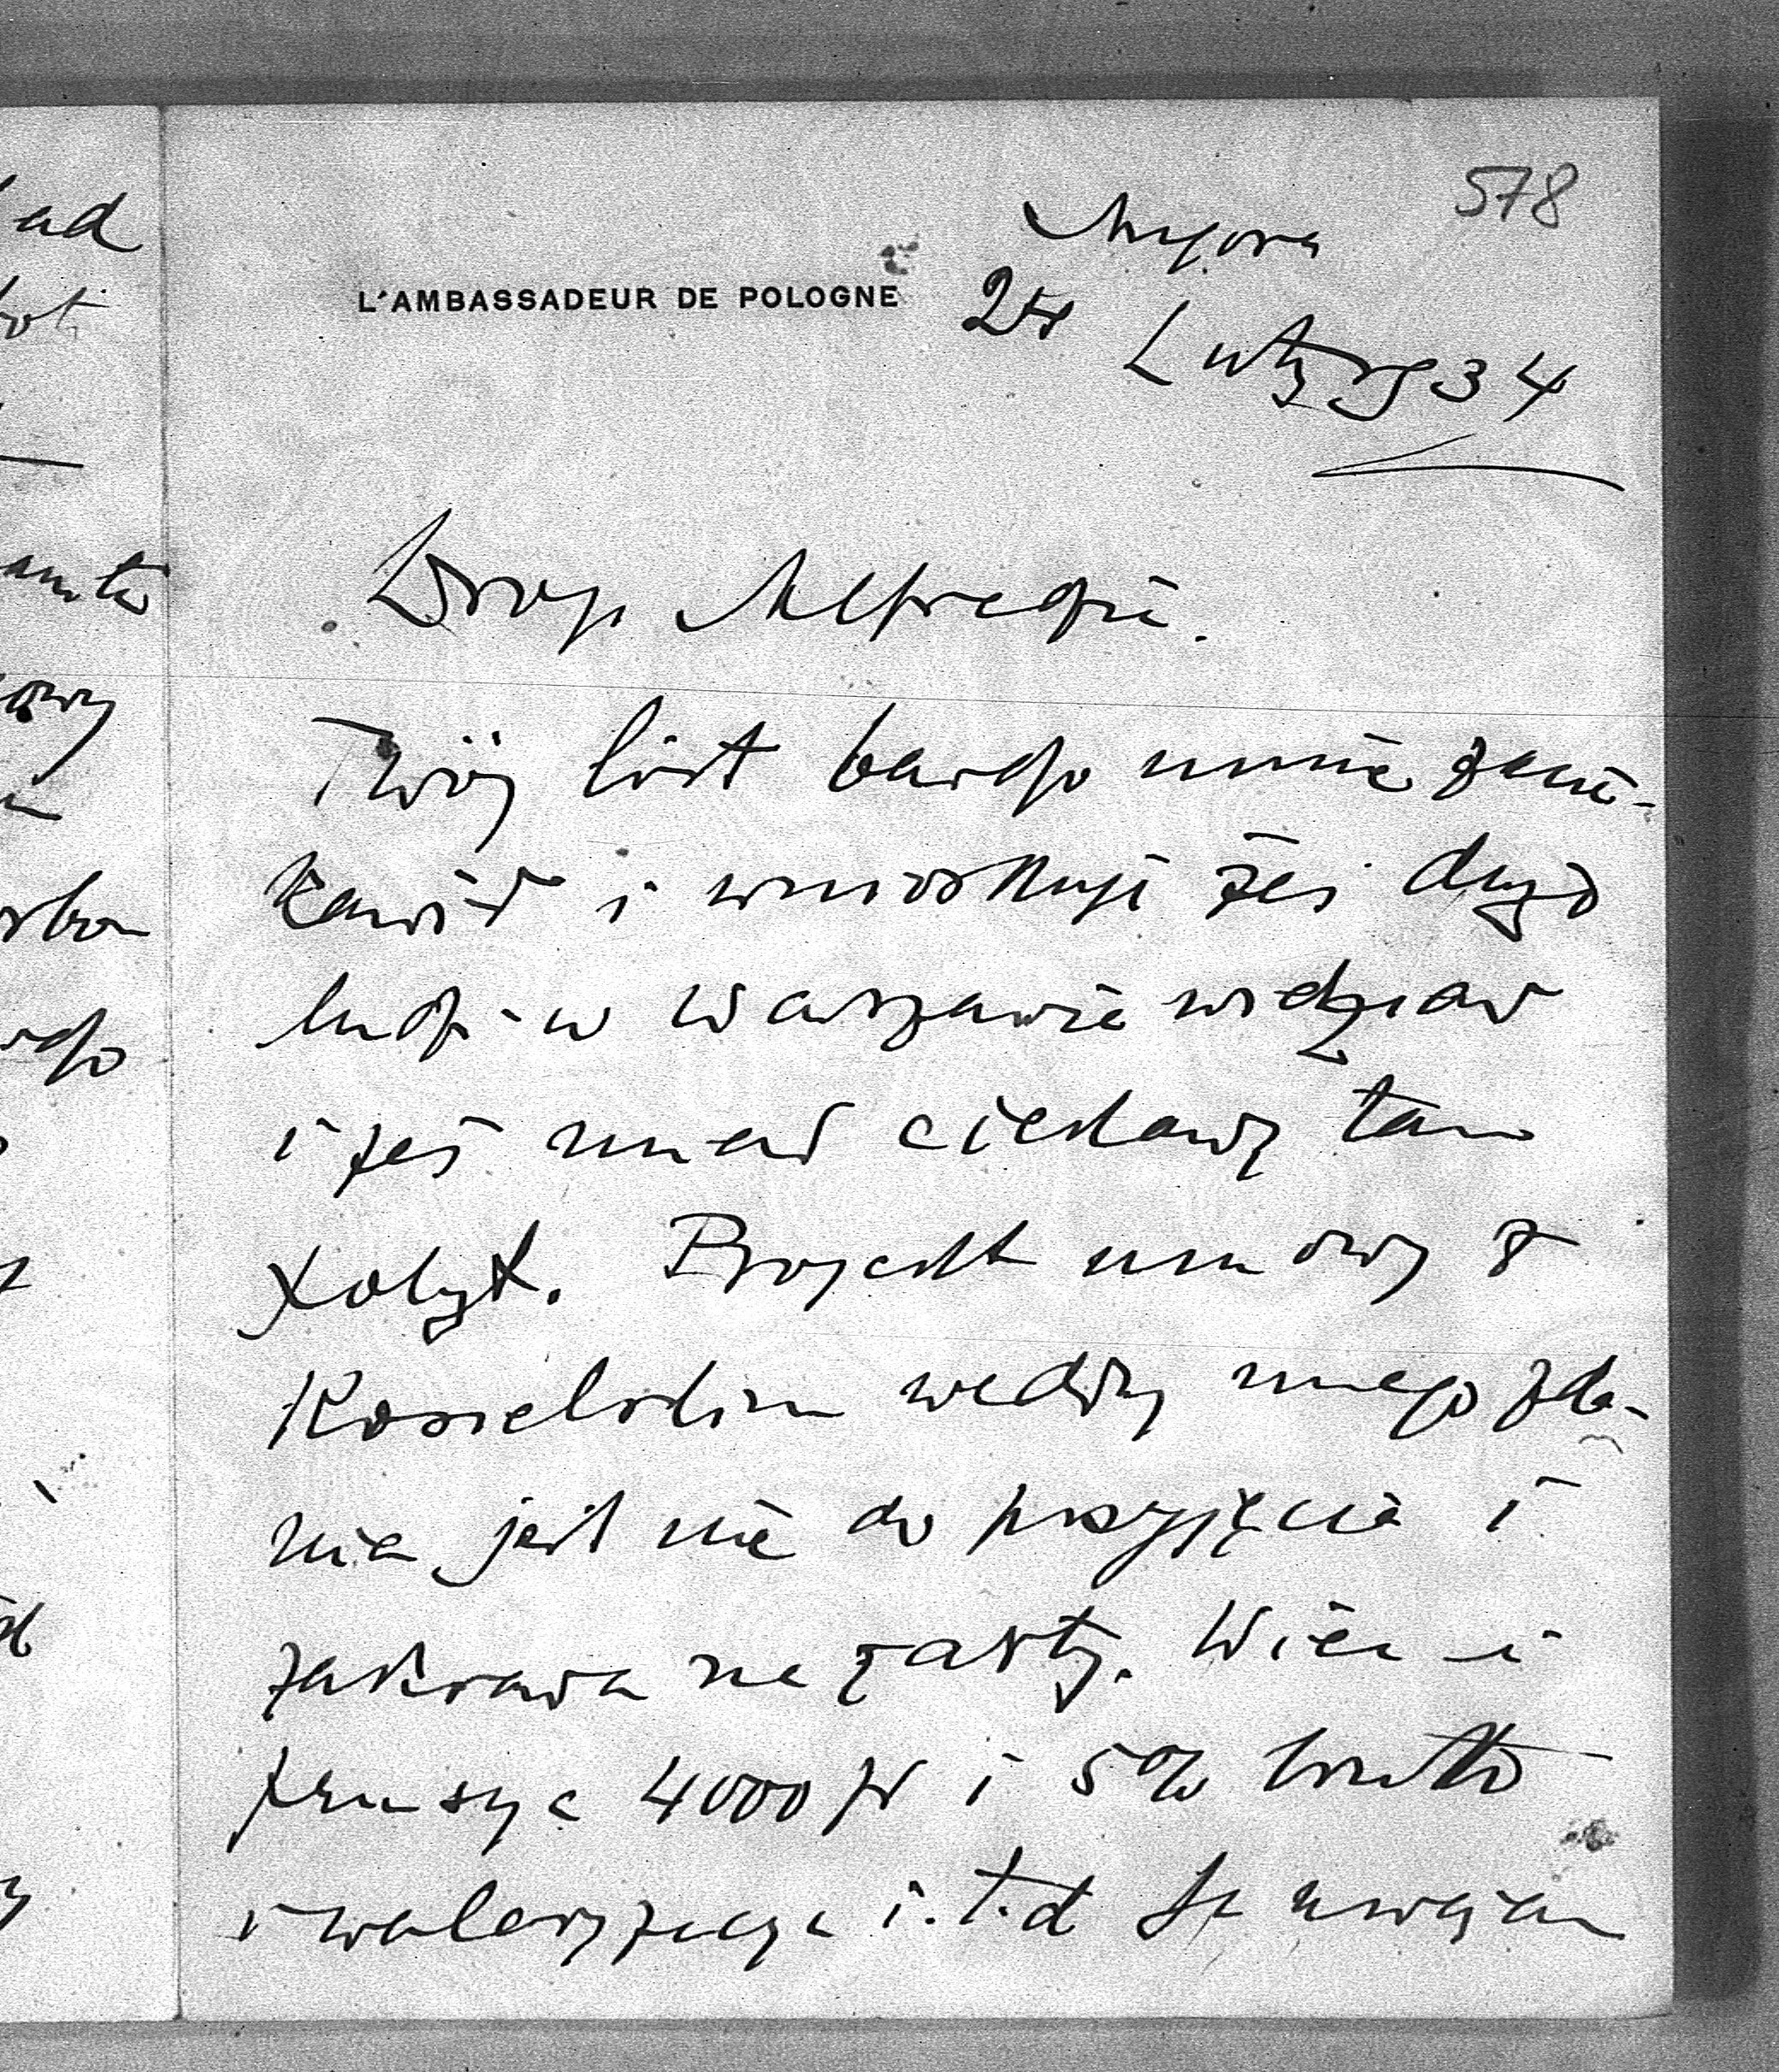 578
Angora
L'AMBASSADEUR DE POLOGNE
24 Luty 934
Drogi Alfredzie.
Twój list bardzo mnie zacie-
kawił i wnioskuję żeś dużo
ludzi w Warszawie widział
i żeś miał ciekawy tam
pobyt. Projekt umowy z
Kosielskim według mego zda-
nia jest nie do przyjęcia i
zakrawa na żarty. Więc i
pensya 4000 zł i 5% brutto
i waloryzacya i.t.d Ja uważam
ad
owy